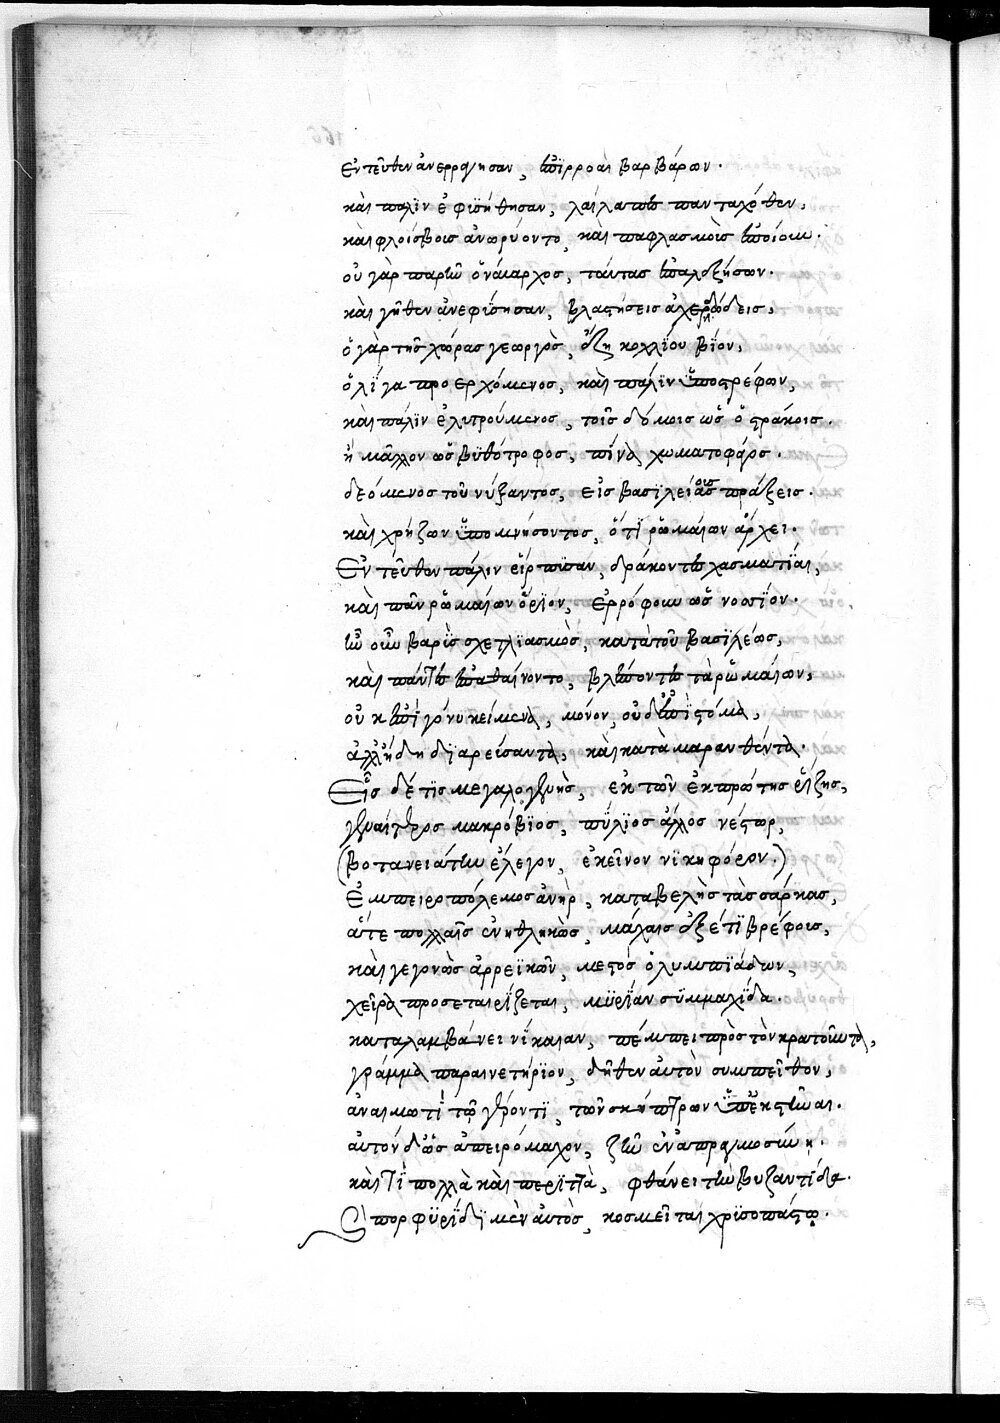 Ἐντεῦθεν ἀνερράγησαν, ἐπίρροαι βαρβάρων.
καὶ πάλϊν ἐφισήθησαν, λαίλαπες πανταχόθεν,
καὶ φλοίσβοις ἀνωρύοντο, καὶ παφλασμοῖς ἐποίουν.
οὐ γὰρ παρῆν ὁ νάυαρχος, ταύτας ἐπαλεξήσων.
καὶ γῆθεν ἀνεφύησαν, βλαστήσεις ἀχερδώδεις,
ὁ γὰρ τῆς χώρας γεωργὸς, ἔζη κοχλίου βίον,
ὀλίγα προερχόμενος, καὶ πάλιν ὑποστρέφων,
καὶ πάλϊν ἐλιτρούμενος, τοῖς δόμοις ὡς ὀστράκοις.
ἢ μᾶλλον ὡς βϋθότροφος, πίνα χωματοφόρος.
δεόμενος τοῦ νύξαντος, εἰς βασϊλείας πράξεις.
καὶ χρήζων ὑπομνήσοντος, ὅτι ῥωμαίων ἄρχει.
Ἐντεῦθεν πάλιν εἷρπυσαν, δράκοντες χασματίαι,
καὶ πᾶν ῥωμαίων ὅρϊον, ἐρρόφουν ὡς νοσσϊόν.
ἦν οὖν βαρϋς σχετλϊασμὸς, κατὰ τοῦ βασϊλέως,
καὶ πάντες ἐπαθαίνοντο, βλέποντες τὰ ῥωμαίων,
οὐκ ἐπὶ γόνυ κείμενα, μόνον, οὐδ' ἐπὶ στόμα,
ἀλλ' ἤδη δϊαρεύσαντα, καὶ καταμαρανθέντα.
Εἷς δέ τις μεγαλογενὴς, ἐκ τῶν ἐκ πρώτης ῥίζης,
γεραίτερος μακρόβϊος, πύλϊος ἄλλος νέστωρ,
(βοτανειάτην ἔλεγον, ἐκεῖνον νϊκηφόρον.)
Ἐμπειροπόλεμος ἀνὴρ, καταβελὴς τὰς σάρκας,
ἅτε πολλαῖς ἐνηθληκὼς, μάχαις ἐξέτϊ βρέφοις,
καὶ γεγονὼς ἀρρεϊκῶν, μεστὸς ὀλυμπϊάδων,
χεῖρα προσεταιρίζεται, μϋρίαν σϋμμαχίδα.
καταλαμβάνει νίκαιαν, πέμπει πρὸς τὸν κρατοῦντα,
γράμμα παραινετήρϊον, δῆθεν αὐτὸν συμπεῖθον,
ἀναιμωτὶ τῷ γέροντϊ, τῶν σκήπτρων ὑπεκστῆναι.
αὐτόν δ' ὡς ἀπειρόμαχον, ζῆν ἐν ἀπραγμοσύνῃ.
καὶ τί πολλὰ καὶ περϊττὰ, φθάνει τὴν βυζαντίδα.
πορφϋρίδϊ μὲν αὐτὸς, κοσμεῖται χρϋσοπάστῳ.